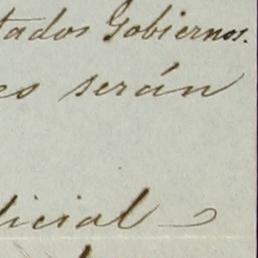 tados Gobiernos.
es serán
licial